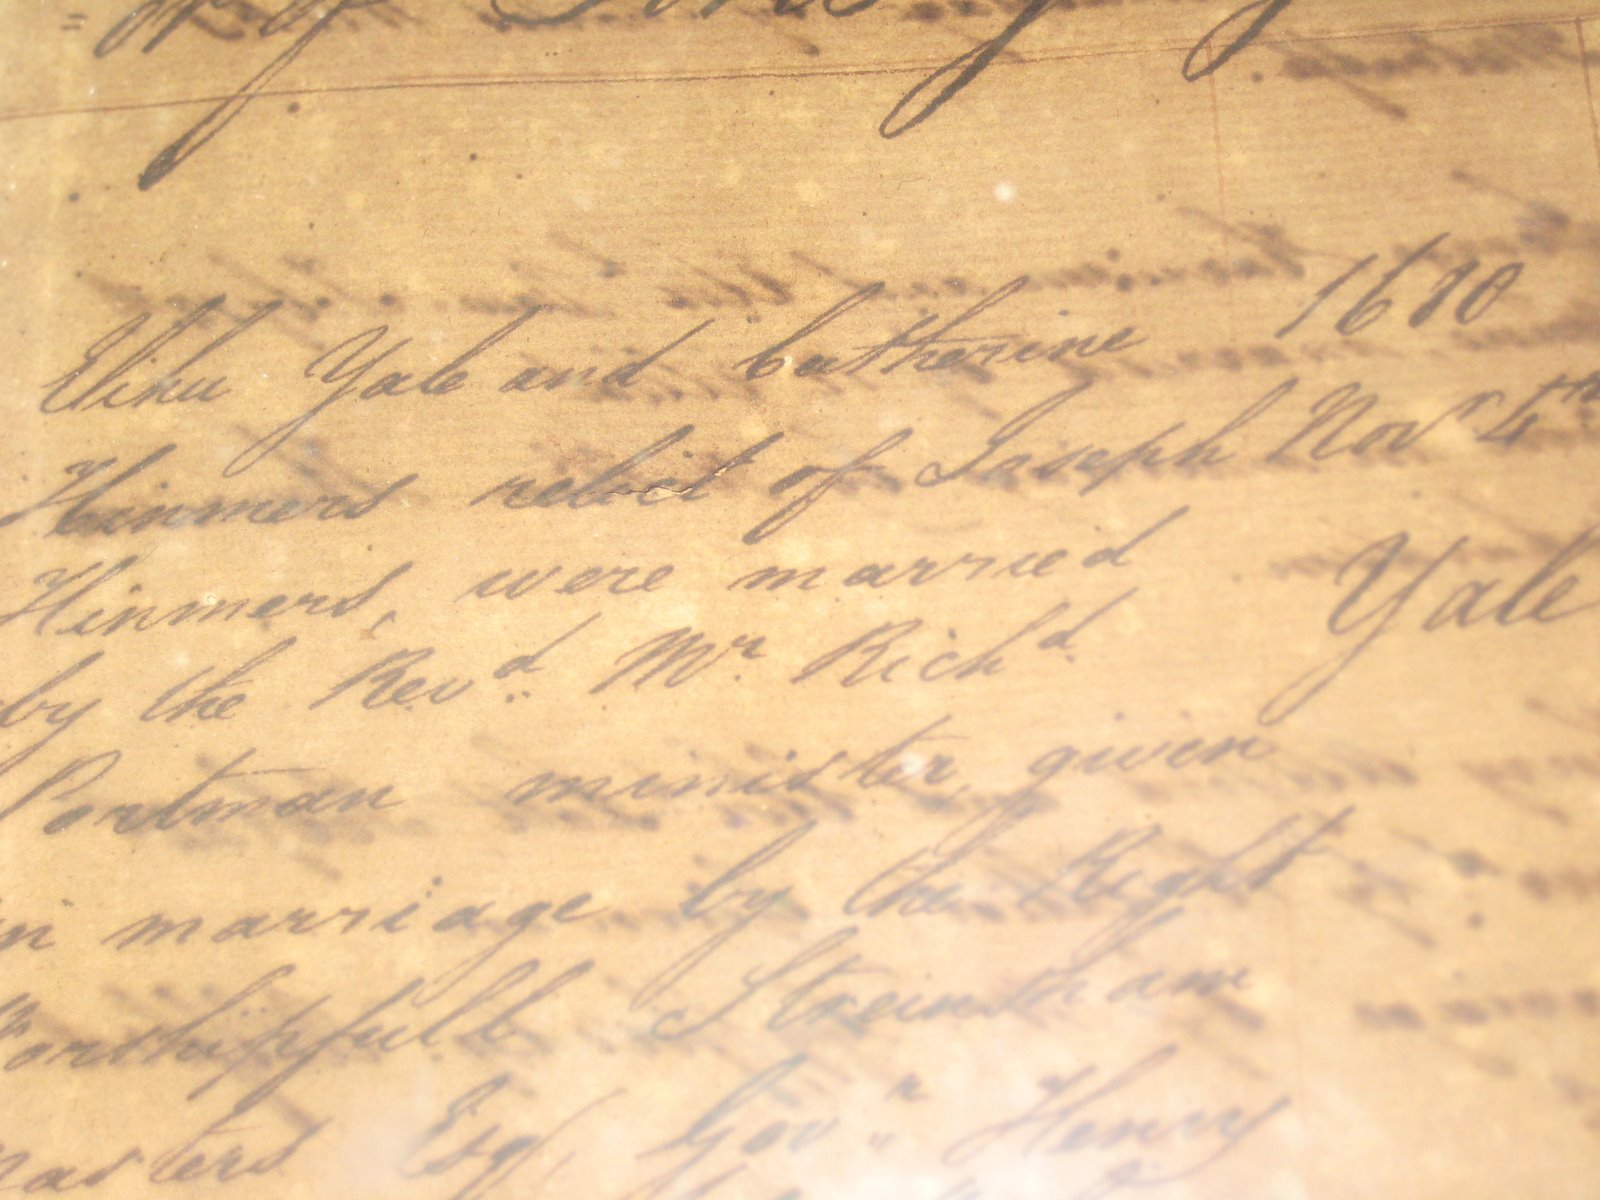 Elihu Yale and Catherine 1680
Hinmers relict of Joseph Novr 4th
Hinmers, were married
by the Revd. Mr. Richd. Yale
Portman minister, given
in marriage by the Right
Worshipfull Streinsham
Masters Esq, Govr Henry